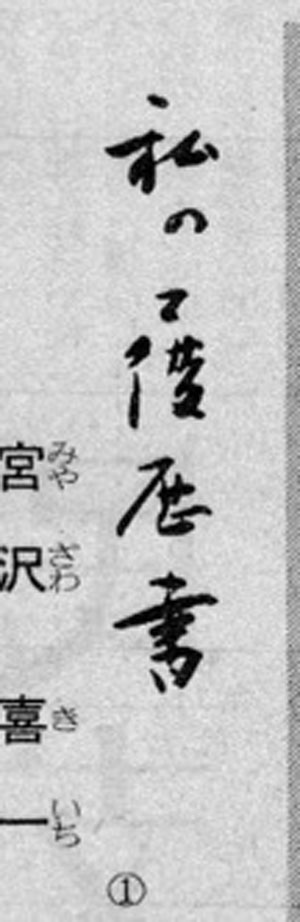 私の履歴書
①
宮沢喜一
みやざわきいち